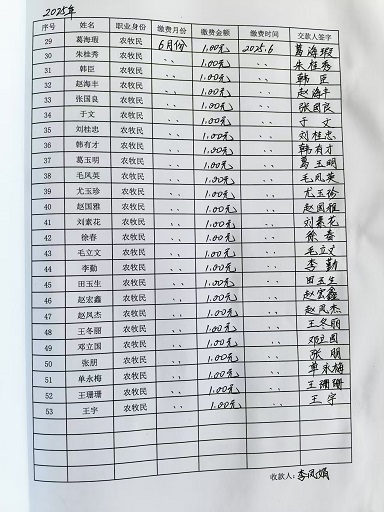 2025年
序号 姓名 职业身份 缴费月份 缴费金额 缴费时间 交款人签字
29 葛海瑕 农牧民 6月份 1.00元 2025.6 葛海瑕
30 朱桂秀 农牧民 、、 1.00元 、、 朱桂秀
31 韩臣 农牧民 、、 1.00元 、、 韩臣
32 赵海丰 农牧民 、、 1.00元 、、 赵海丰
33 张国良 农牧民 、、 1.00元 、、 张国良
34 于文 农牧民 、、 1.00元 、、 于文
35 刘桂忠 农牧民 、、 1.00元 、、 刘桂忠
36 韩有才 农牧民 、、 1.00元 、、 韩有才
37 葛玉明 农牧民 、、 1.00元 、、 葛玉明
38 毛凤英 农牧民 、、 1.00元 、、 毛凤英
39 尤玉珍 农牧民 、、 1.00元 、、 尤玉珍
40 赵国雅 农牧民 、、 1.00元 、、 赵国雅
41 刘素花 农牧民 、、 1.00元 、、 刘素花
42 徐春 农牧民 、、 1.00元 、、 徐春
43 毛立文 农牧民 、、 1.00元 、、 毛立文
44 李勤 农牧民 、、 1.00元 、、 李勤
45 田玉生 农牧民 、、 1.00元 、、 田玉生
46 赵宏鑫 农牧民 、、 1.00元 、、 赵宏鑫
47 赵凤杰 农牧民 、、 1.00元 、、 赵凤杰
48 王冬丽 农牧民 、、 1.00元 、、 王冬丽
49 邓立国 农牧民 、、 1.00元 、、 邓立国
50 张朋 农牧民 、、 1.00元 、、 张朋
51 单永梅 农牧民 、、 1.00元 、、 单永梅
52 王珊珊 农牧民 、、 1.00元 、、 王珊珊
53 王宇 农牧民 、、 1.00元 、、 王宇
收款人：李凤娟